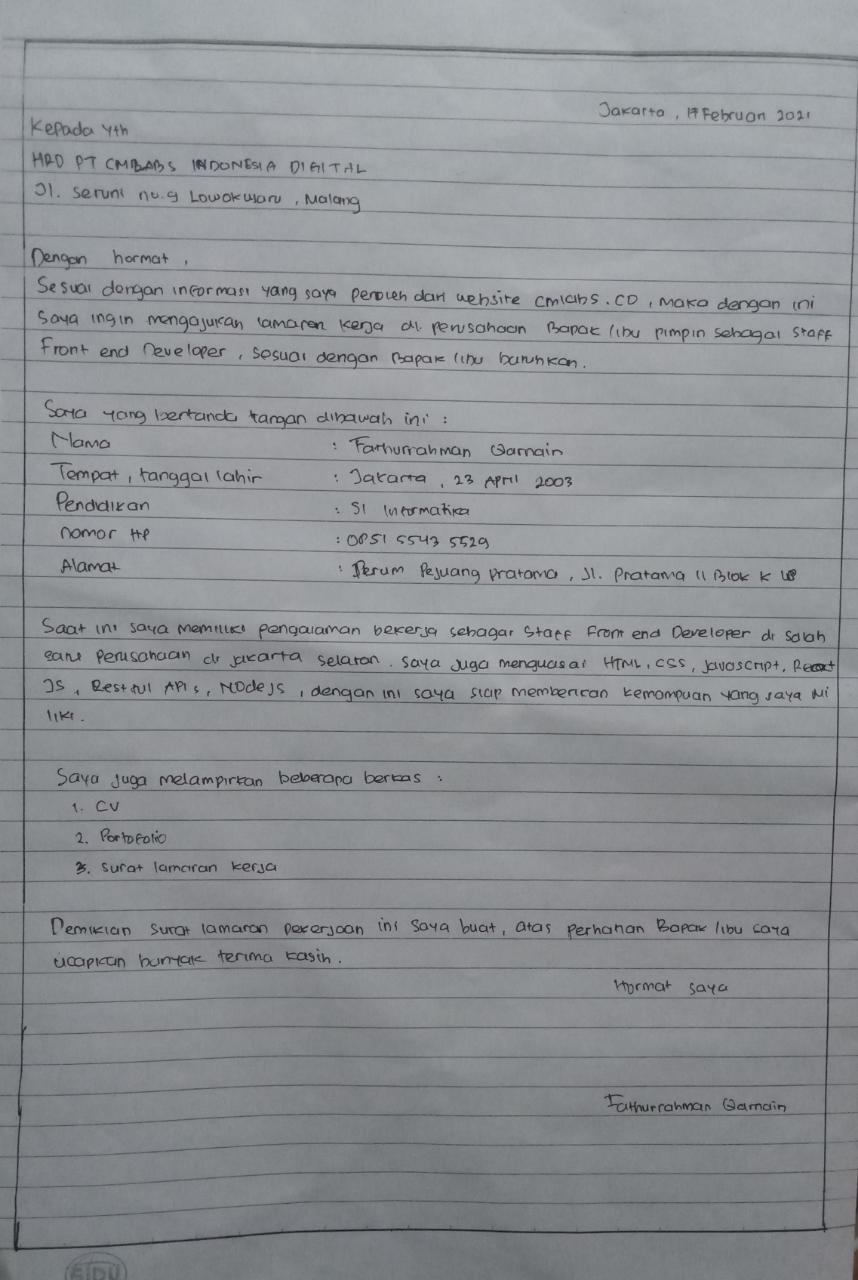 Jakarta, 17 Februari 2021
Kepada Yth
HRD PT CMLABS INDONESIA DIGITAL
Jl. Seruni no.9 Lowokwaru, Malang
Dengan hormat,
Sesuai dengan informasi yang saya peroleh dari website cmlabs.co, maka dengan ini
saya ingin mengajukan lamaran kerja di perusahaan Bapak/ibu pimpin sebagai staff
Front end Developer, sesuai dengan Bapak/ibu butuhkan.
Saya yang bertanda tangan dibawah ini :
Nama : Fathurrahman Qarnain
Tempat, tanggal lahir : Jakarta, 23 April 2003
Pendidikan : S1 Informatika
nomor HP : 0851 5543 5529
Alamat : Perum Pejuang pratama, Jl. Pratama 11 Blok K
Saat ini saya memiliki pengalaman bekerja sebagai Staff Front end Developer di salah
satu perusahaan di jakarta selatan. saya juga menguasai HTML, CSS, javascript, React
JS, Restful APIs, Nodejs, dengan ini saya siap memberikan kemampuan yang saya mi
liki.
Saya juga melampirkan beberapa berkas :
1. CV
2. Portofolio
3. surat lamaran kerja
Demikian surat lamaran pekerjaan ini saya buat, atas perhatian Bapak/ibu saya
ucapkan banyak terima kasih.
Hormat saya
Fathurrahman Qarnain
SIDU